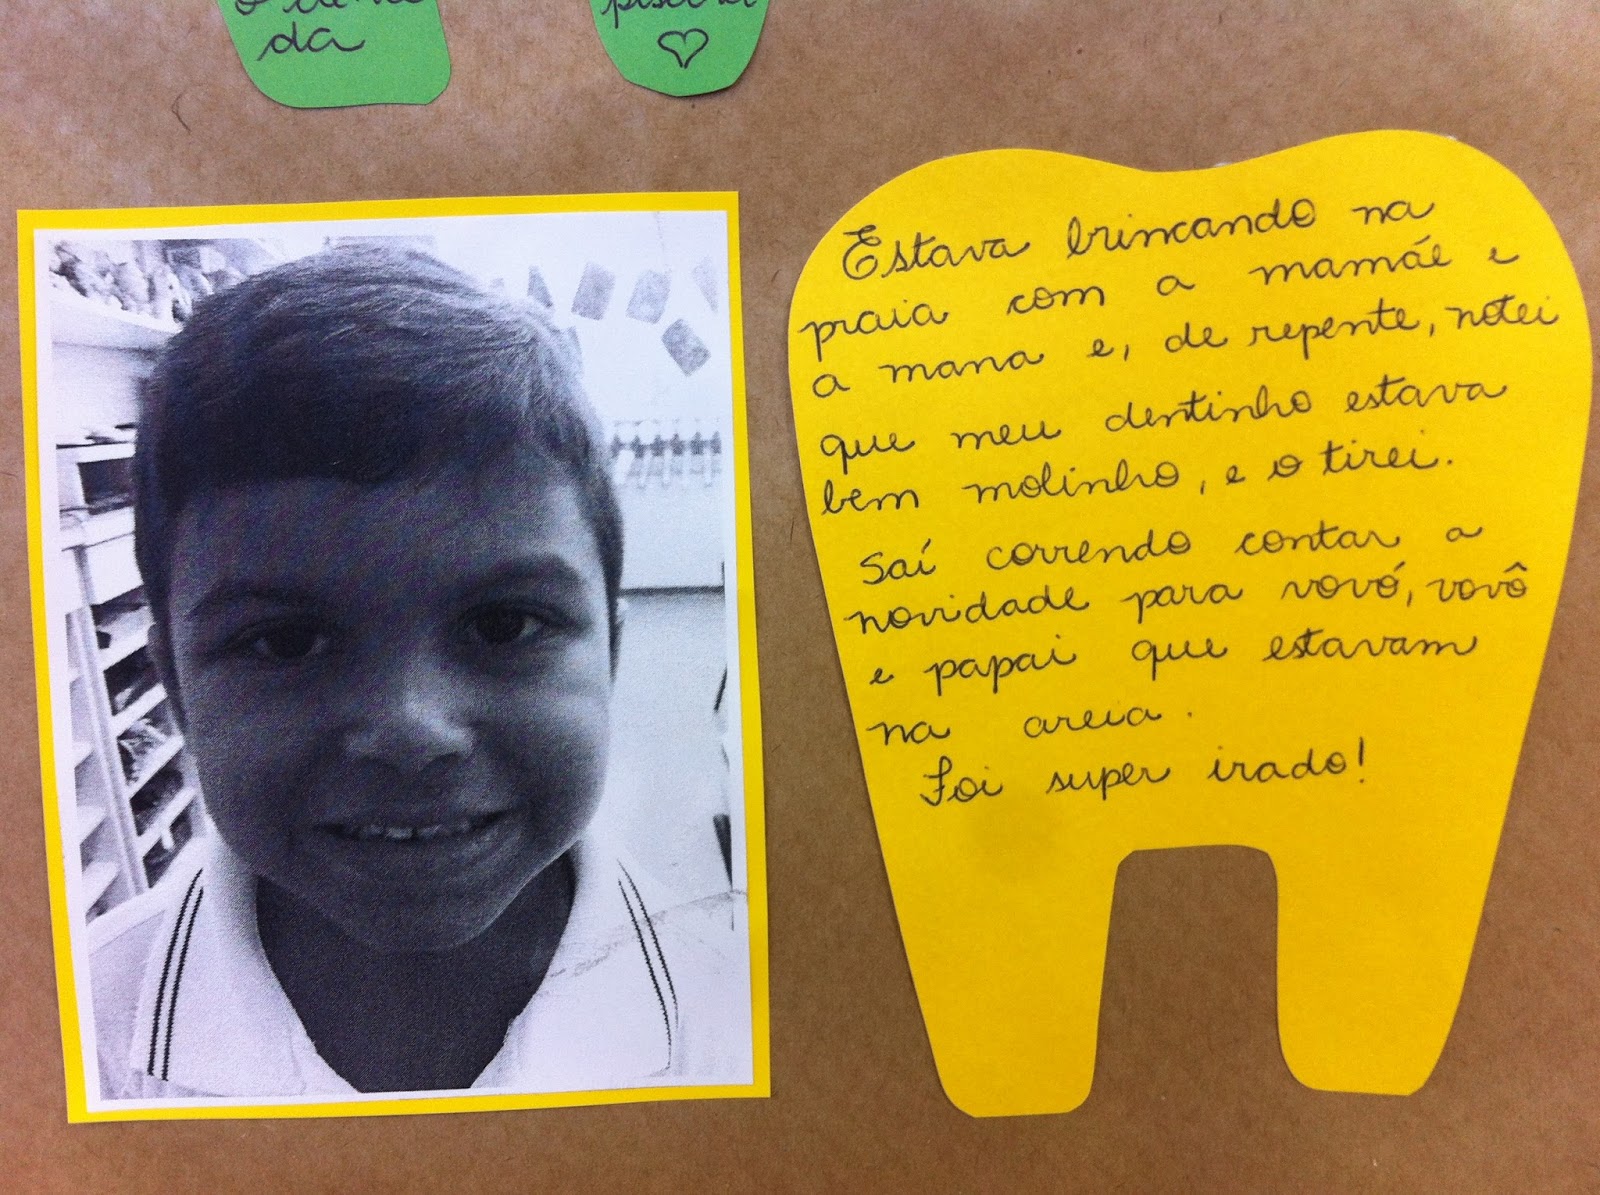 da
Estava brincando na
praia com a mamãe e
a mana e, de repente, notei
que meu dentinho estava
bem molinho, e o tirei.
Saí correndo contar a
novidade para vovó, vovô
e papai que estavam
na areia.
Foi super irado!